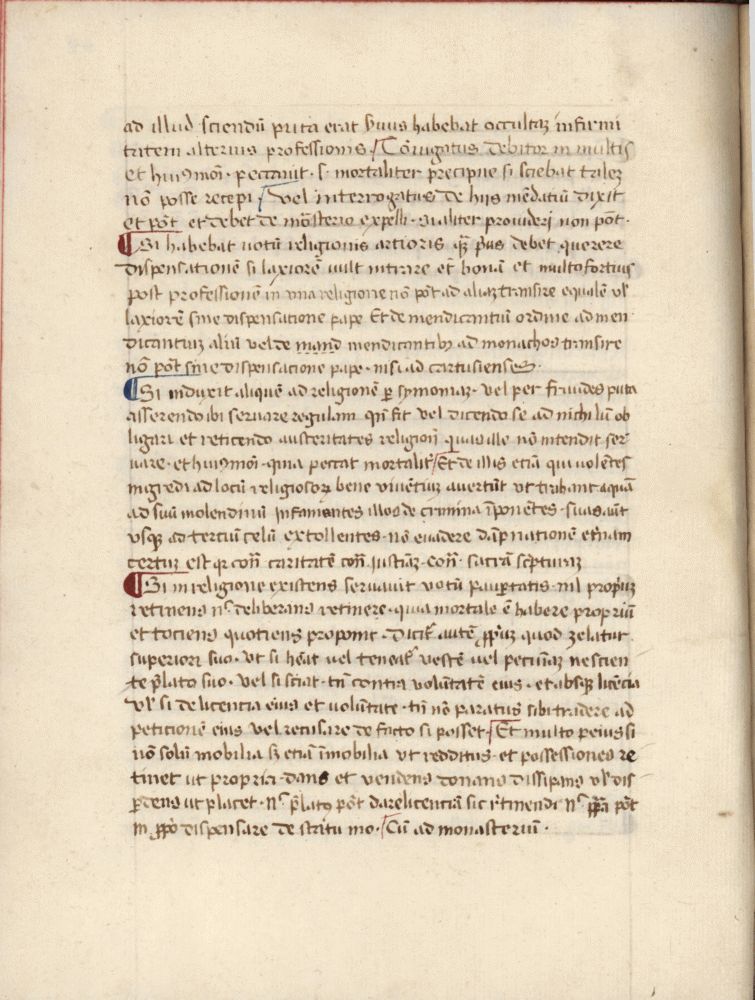 ad illud sciendū puta erat seruus habebat occultaȝ infirmi
tatem alterius professionis Cōiugatus debitor in multis
et huiꝰmōi · peccauit · s · mortaliter precipue si sciebat taleȝ
nō posse recepi vel interrogatus de hiis mēdatiū dixit
et pōt et debet de mōsterio expelli · aī aliter prouideri non pōt ·
¶ Si habebat uotū religionis artioris qȝ pus debet querere
dispensationē si laxiorē uult intrare et bonā et multo fortius
post professionē in vna religione nō pōt ad aliaȝ transire equalē ul
laxiorē sine dispensatione pape Et de mendicantiū ordine ad men
dicantiuȝ aliū vel de mand mendicantibȝ ad monachos transire
nō pōt sine dispensatione pape · nisi ad cartusienses ·
¶ Si induxit aliquē ad religionē ꝑ symoniaȝ · vel per fraudes puta
asserendo ibi seruare regulam qn̄ fit vel dicendo se ad nichilū ob
ligari et reticendo austeritates religioīs quas ille nō intendit ser
uare · et huiꝰmōi · quia peccat mortalit Et de illis etiā qui uolētes
ingredi ad locū religiosoꝝ bene viuētiuȝ auertūt ut trahant aquā
ad suū molendinū infamantes illos de crimina īponētes · suas aūt
vsqȝ ad tertiū celū extollentes · nō euadere dāpnationē etnam
certuȝ est qr cōn caritatē cōn iustāȝ · cōn · sacrā scpturaȝ
¶ Si in religione existens seruauit votū pauptatis · nil propuȝ
retinens nc deliberans retinere · quia mortale ē habere propriū
et tociens quotiens proponit · dicit autē ppuȝ quod zelatur
superiori suo · ut si hēat uel teneat vestē uel pecuniaȝ nescien
te plato suo · vel si sciat · tn̄ contra volūtatē eius · et absqȝ licēcia
vl si de licentia eius et volūtate · tn̄ nō paratus sibi tradere ad
peticionē eius vel recusare de facto si posset · Et multo peius si
nō solū mobilia sȝ etiā īmobilia ut redditus · et possessiones re
tinet ut propria · dans et vendens donans dissipans vl dis
pdens ut placet · nc plato pōt dare licentiā sic rtinendi nc ppa pōt
in ppo dispensare de statu mo · Cū ad monasteriū ·